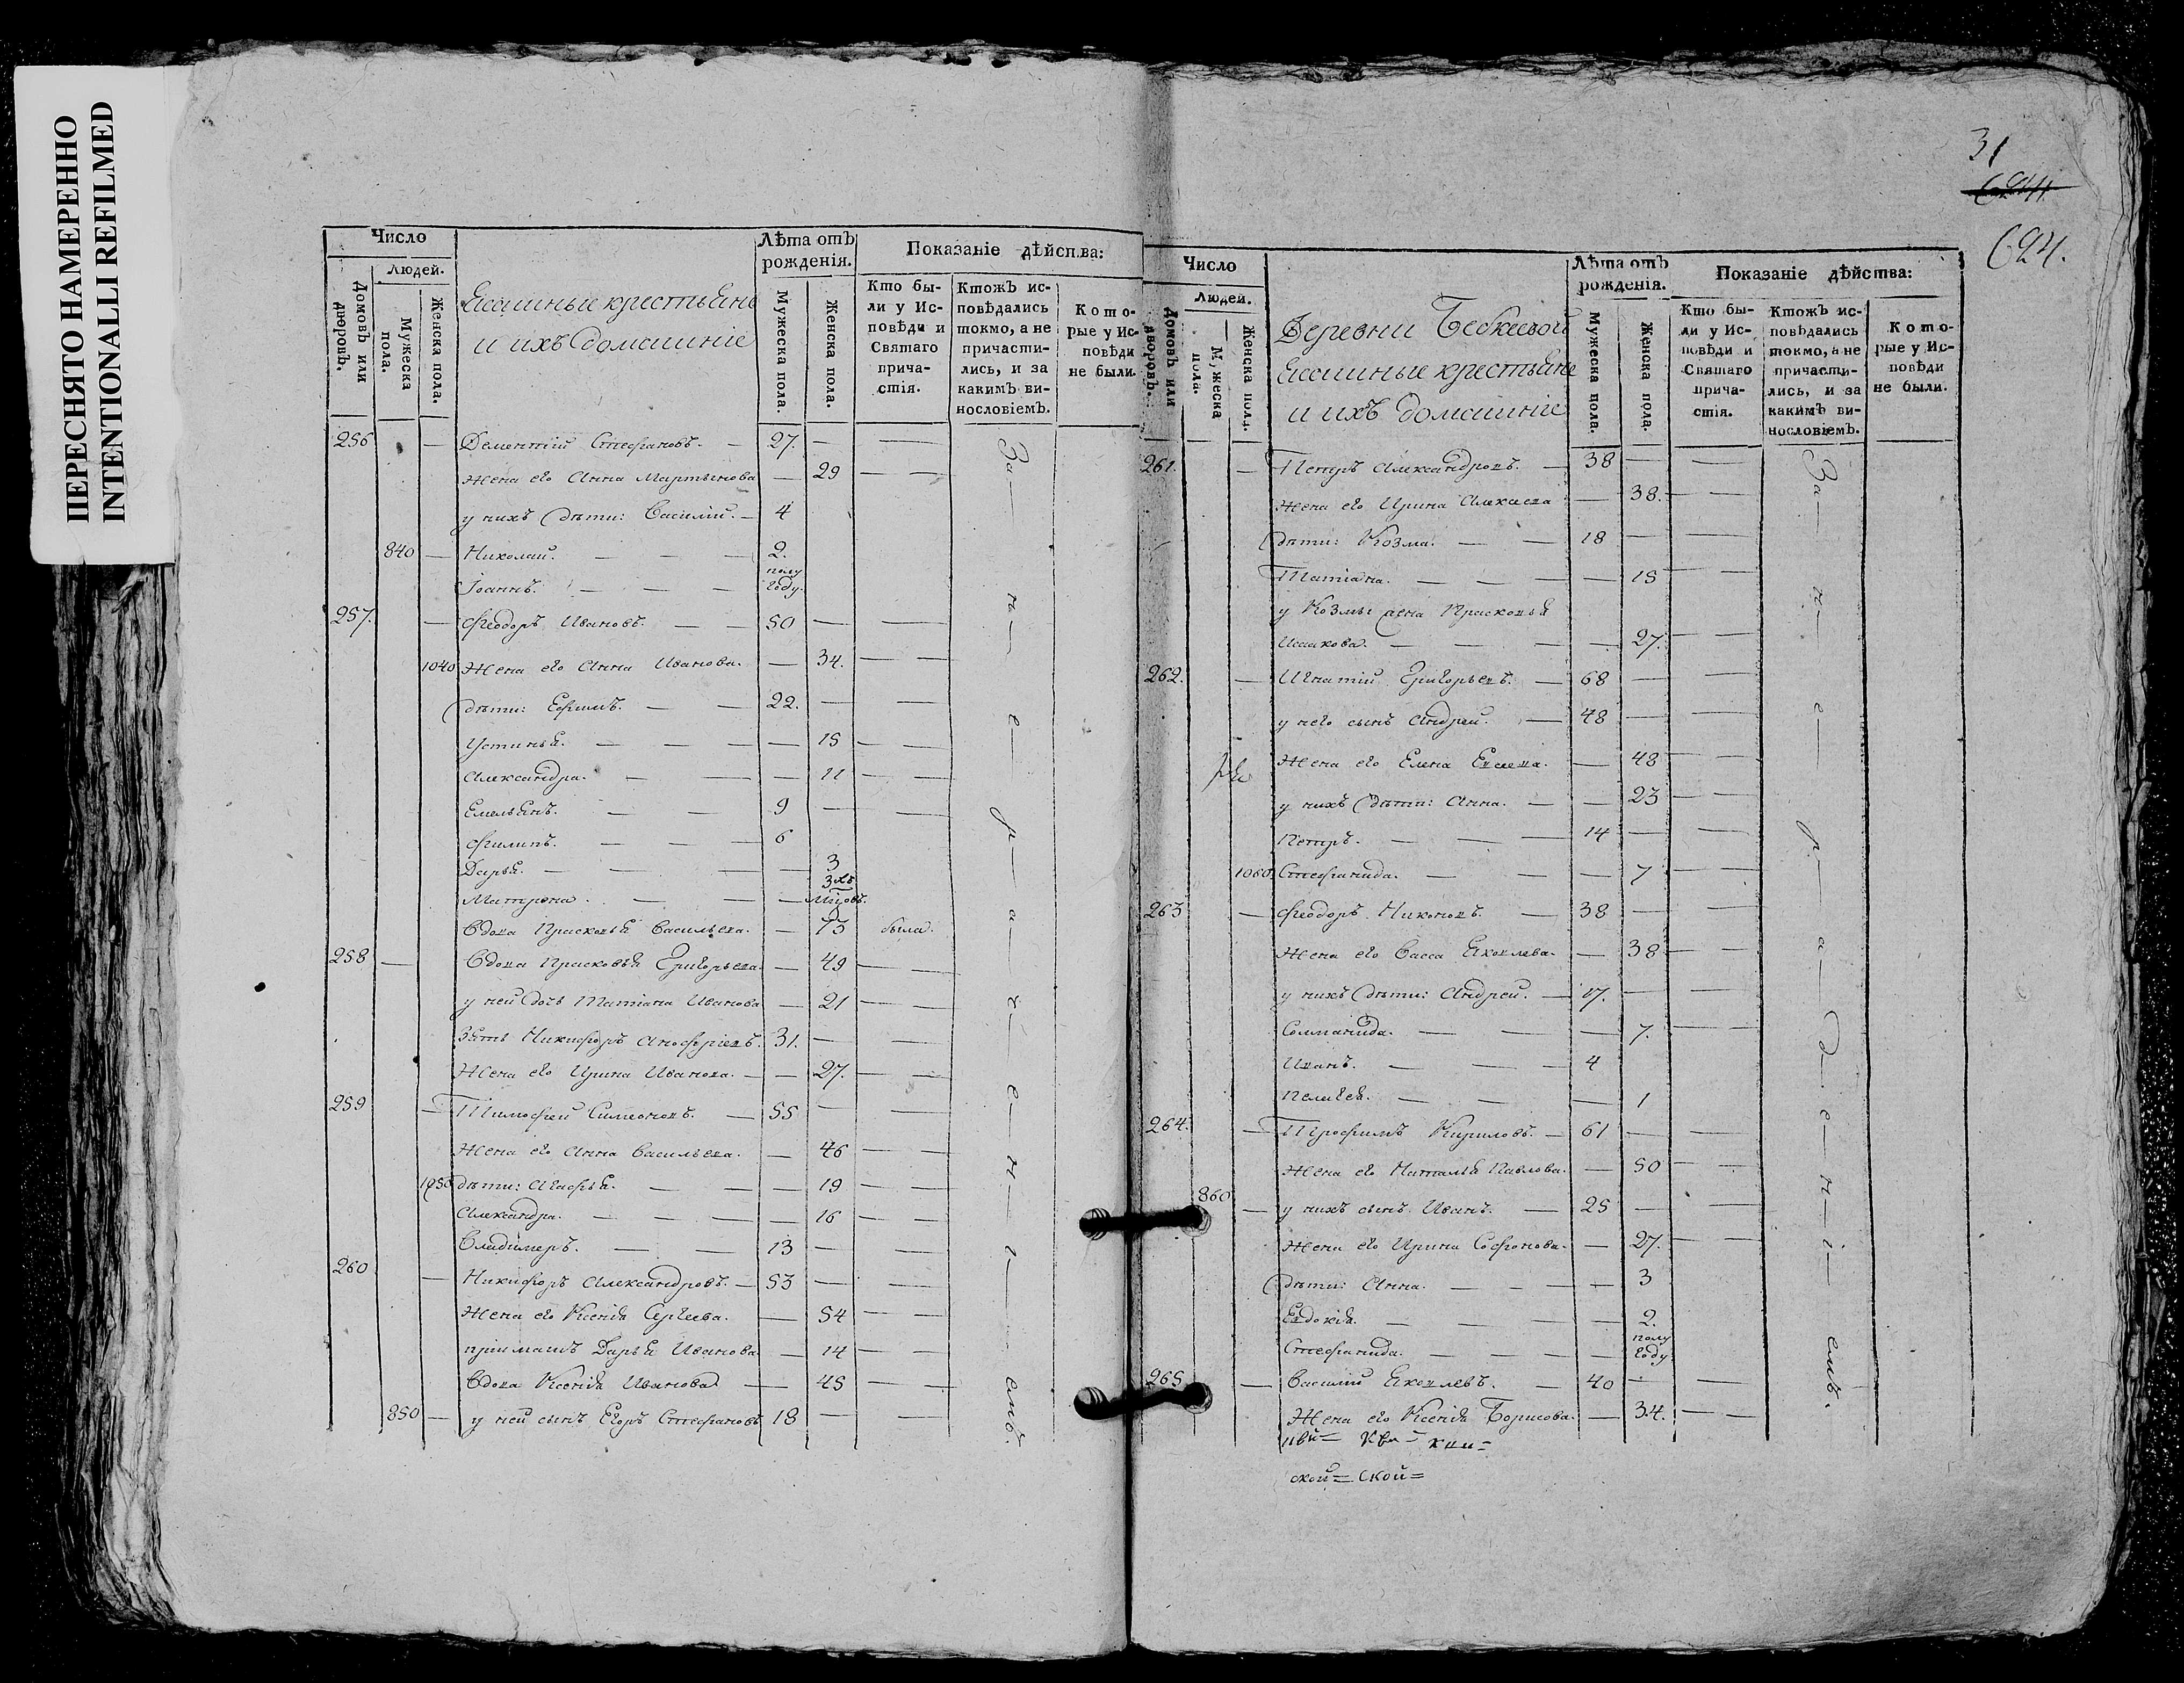 ПЕРЕСНЯТО НАМЕРЕННО
INTENTIONALLI REFILMED
Число
Людей.
Домовъ или дворовъ.
Мужеска пола.
Женска пола.
Ясашныя крестьяне
и ихъ домашніе
Лѣта отъ рожденія.
Мужеска пола.
Женска пола.
Показаніе дѣйства:
Кто бы-
ли у Ис-
повѣди и
Святаго
прича-
стія.
Ктожъ ис-
повѣдались
токмо, а не
причасти-
лись, и за
какимъ ви-
нословіемъ.
Кото-
рые у Ис-
повѣди
не были.
256 — Дементій Стефановъ. — 27. — —
Жена его Анна Мартынова — 29 — —
у нихъ дѣти: Василій. — 4
840 — Николай. — — — 2.
Іоаннъ. — — — полу году.
257. — Феодоръ Ивановъ. — — 50 — —
1040 Жена его Анна Иванова. — 34. — —
дѣти: Ефимъ. — — 22. — —
Устинья. — — — — 15 — —
Александра. — — — 11 — —
Емельянъ. — — 9 — —
Филипъ. — — — 6
Дарья. — — — — — 3
Матрона. — — — 3хъ мцовъ.
Вдова Прасковья Васильева. — 73 была.
258 — Вдова Прасковья Григорьева. — 49 — —
у ней дочь Татіана Иванова — 21 — —
Зять Никифоръ Анофріевъ. 31. — —
Жена его Ирина Иванова. — — 27. — —
259 — Тимофей Симеоновъ. — 55 — —
Жена его Анна Васильева. — 46 — —
1050 дѣти: Агафья. — — — 19 — —
Александра. — — — — 16 — —
Владимеръ. — — 13 — —
260 — Никифоръ Александровъ. — 53 — —
Жена его Ксенія Сергеева. — 54 — —
пріимашъ Дарья Иванова — 14 — —
Вдова Ксенія Иванова — 45 — —
850 — у ней сынъ Егоръ Стефановъ 18 — —
За — н — е — р — а — х — е — н — і — емъ.
31
694.
Число
Людей.
Домовъ или дворовъ.
Мужеска пола.
Женска пола.
Деревни
Ясашныя крестьяне
и ихъ домашніе
Лѣта отъ рожденія.
Мужеска пола.
Женска пола.
Показаніе дѣйства:
Кто бы-
ли у Ис-
повѣди и
Святаго
прича-
стія.
Ктожъ ис-
повѣдались
токмо, а не
причасти-
лись, и за
какимъ ви-
нословіемъ.
Кото-
рые у Ис-
повѣди
не были.
261. — Петръ Александровъ. — 38 — —
Жена его Ирина Алексеева — 38. — —
дѣти: Козма. — — 18 — —
Татіана. — — — — 15 — —
у Козмы жена Прасковья
Исакова. — — — — 27. — —
262. — Игнатій Григорьевъ. — 68 — —
у него сынъ Андрей. — 48 — —
Жена его Елена Евсеева. — 48 — —
у нихъ дѣти: Анна. — — 23 — —
Петръ. — — — 14 — —
1060. Стефанида. — — — 7 — —
263 — Феодоръ Никоновъ. — 38 — —
Жена его Васса Яковлева. — 38 — —
у нихъ дѣти: Андрей. — 17. — —
Соломанида. — — — 7. — —
Иванъ. — — — 4
Пелагея. — — — — 1
264. — Трофимъ Кириловъ. — 61 — —
Жена его Наталья Павлова. — 50 — —
860 — у нихъ сынъ Иванъ. — 25 — —
Жена его Ирина Софонова. — 27. — —
дѣти: Анна. — — — — 3
Евдокія. — — — — 2.
Стефанида. — — — — полу году.
265 — Василій Яковлевъ. — 40 — —
Жена его Ксенія Борисова. — 34. — —
ской= ской=
За — н — е — р — а — д — е — н — і — емъ.